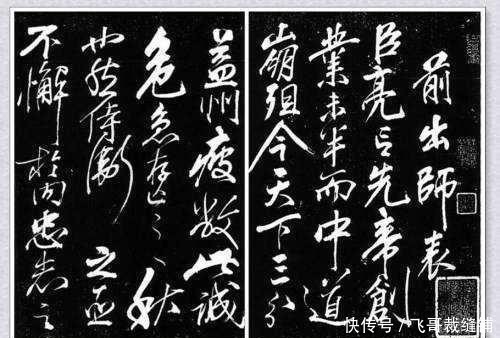 前出師表
臣亮言先帝創
業未半而中道
崩殂今天下三分
益州疲敝此誠
危急存亡之秋
也然侍衛之臣
不懈於內忠志之
快传号/飞哥裁缝铺